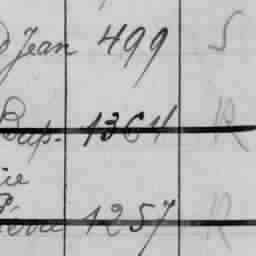 Jean 499 S
Bap. 1364 R
rie
Pierre 1257 R